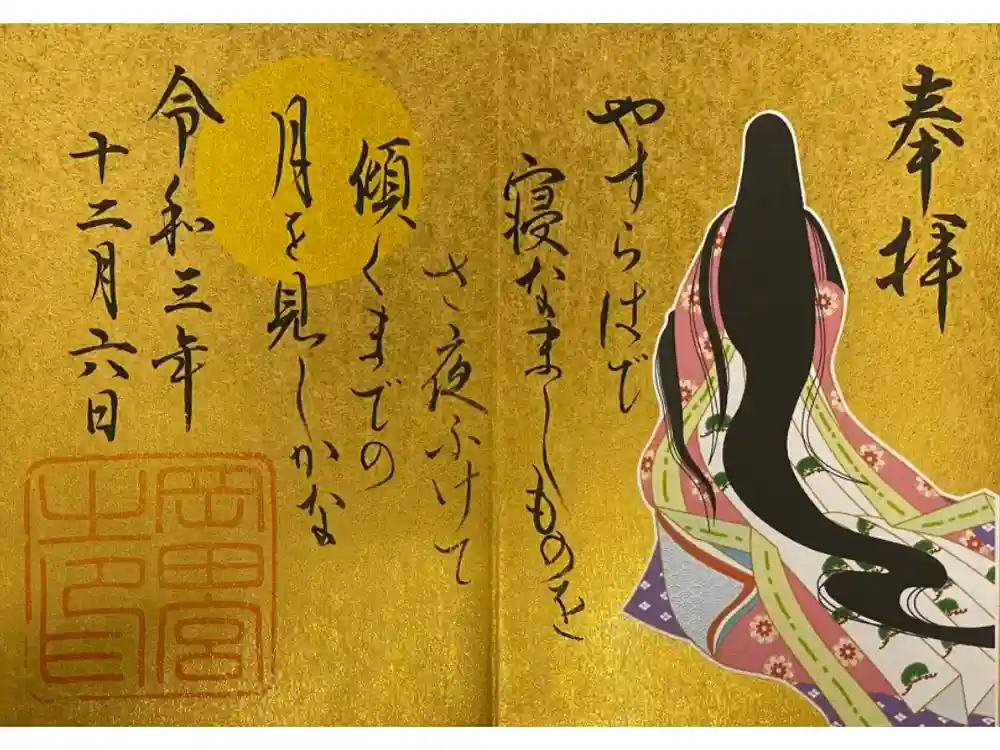 奉拝
やすらはで
寝なましものを
さ夜ふけて
傾くまでの
月を見しかな
令和三年
十二月六日
岡田宮
之印